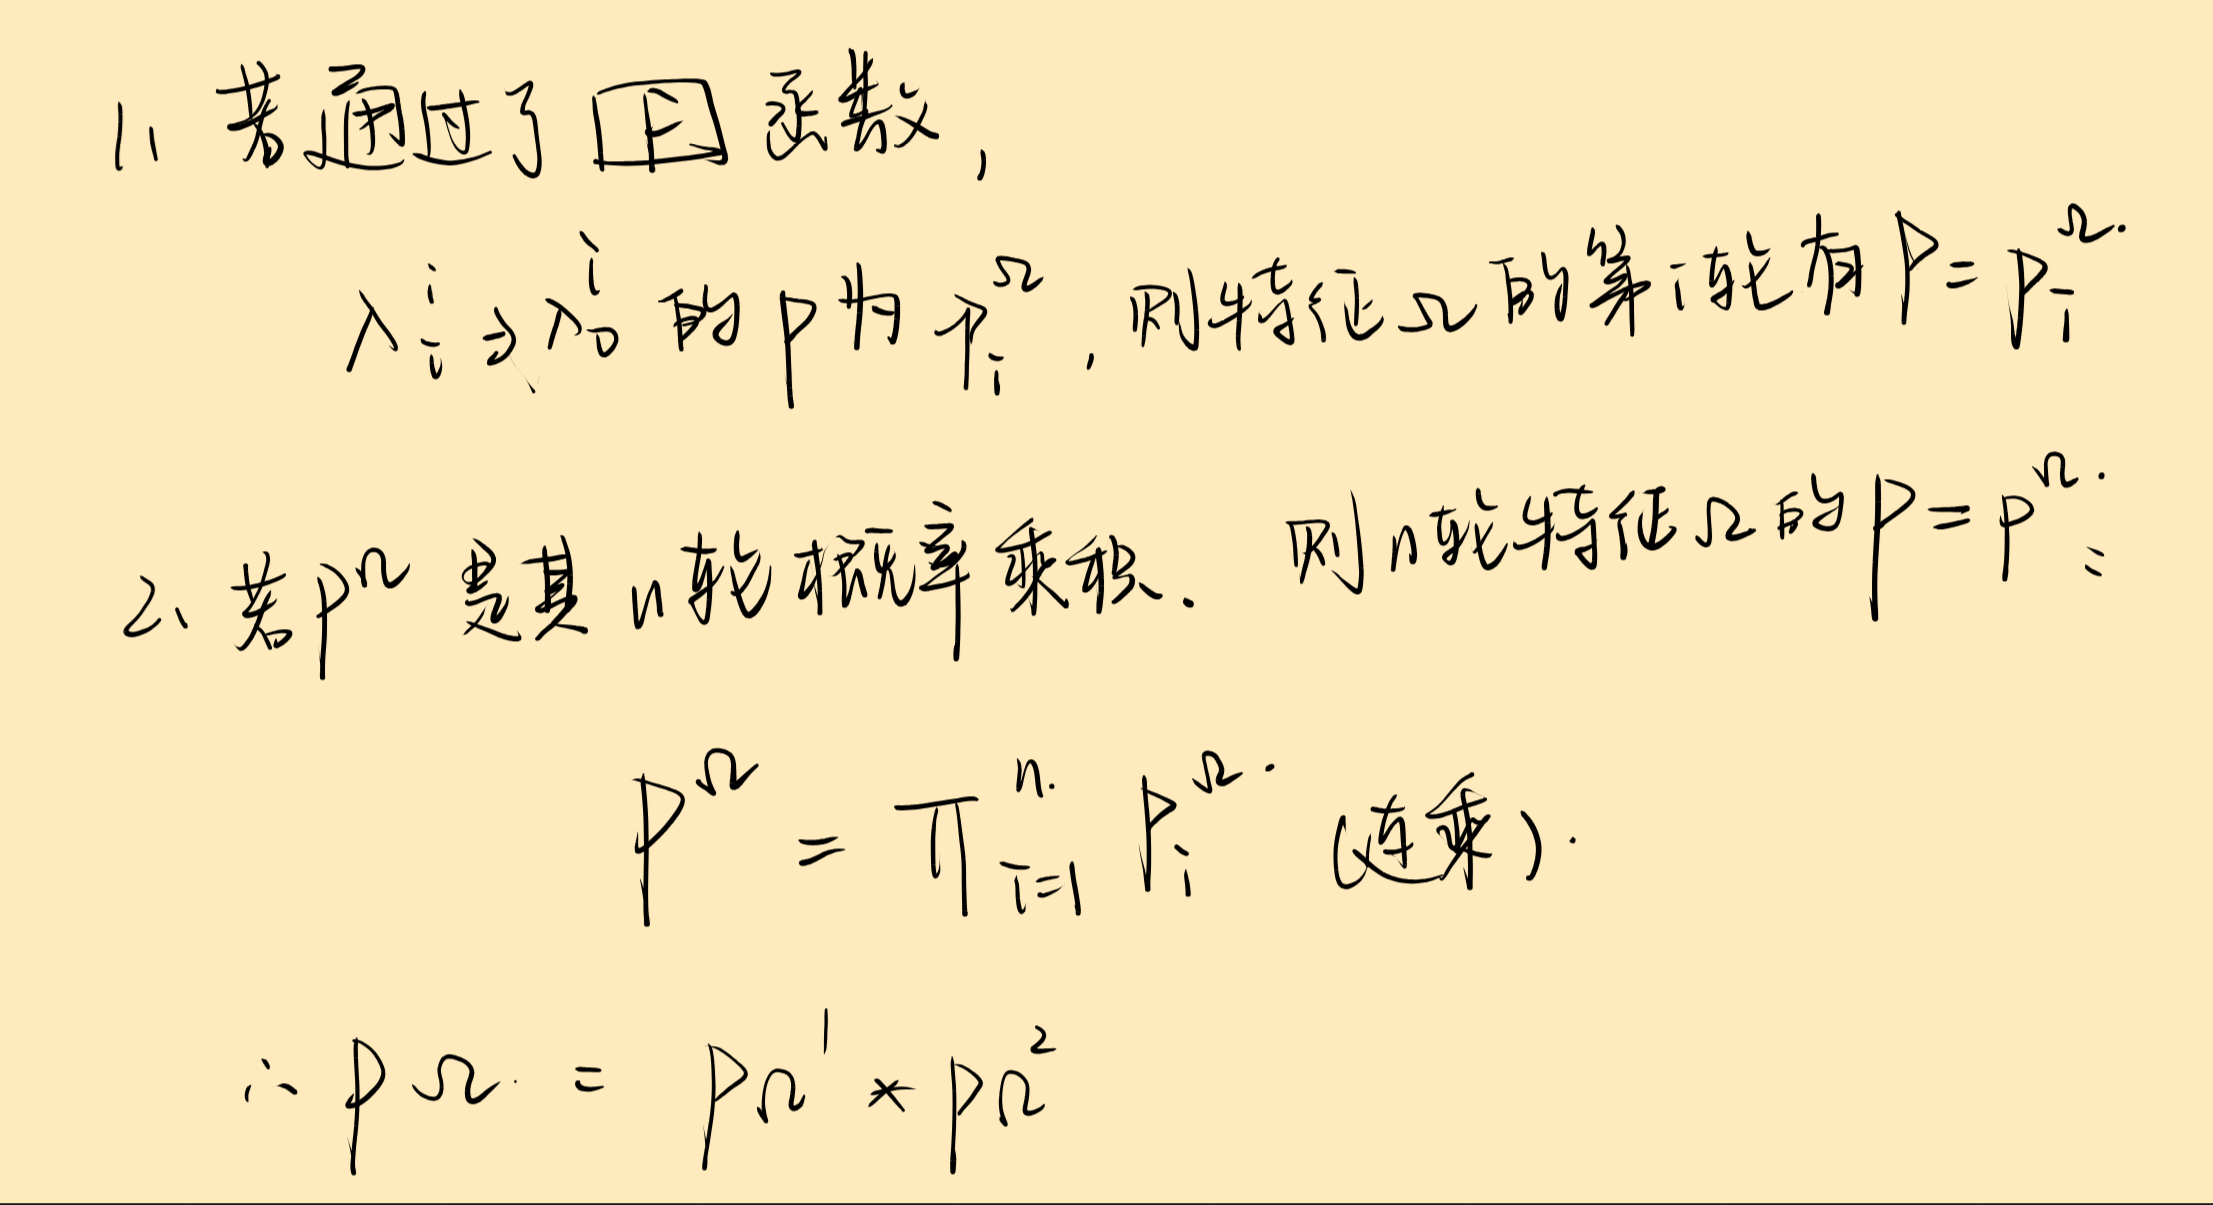 1、若通过了 F 函数,
λ_i^i → λ_o^i 的 p 为 p_i^Ω, 则特征Ω的第i轮有 P = P_i^Ω.
2、若 p^Ω 是其 n轮概率乘积. 则n轮特征Ω的 P = P^Ω. =
P^Ω = π_{i=1}^{n.} P_i^Ω. (连乘).
∴ P Ω. = PΩ^1 * PΩ^2